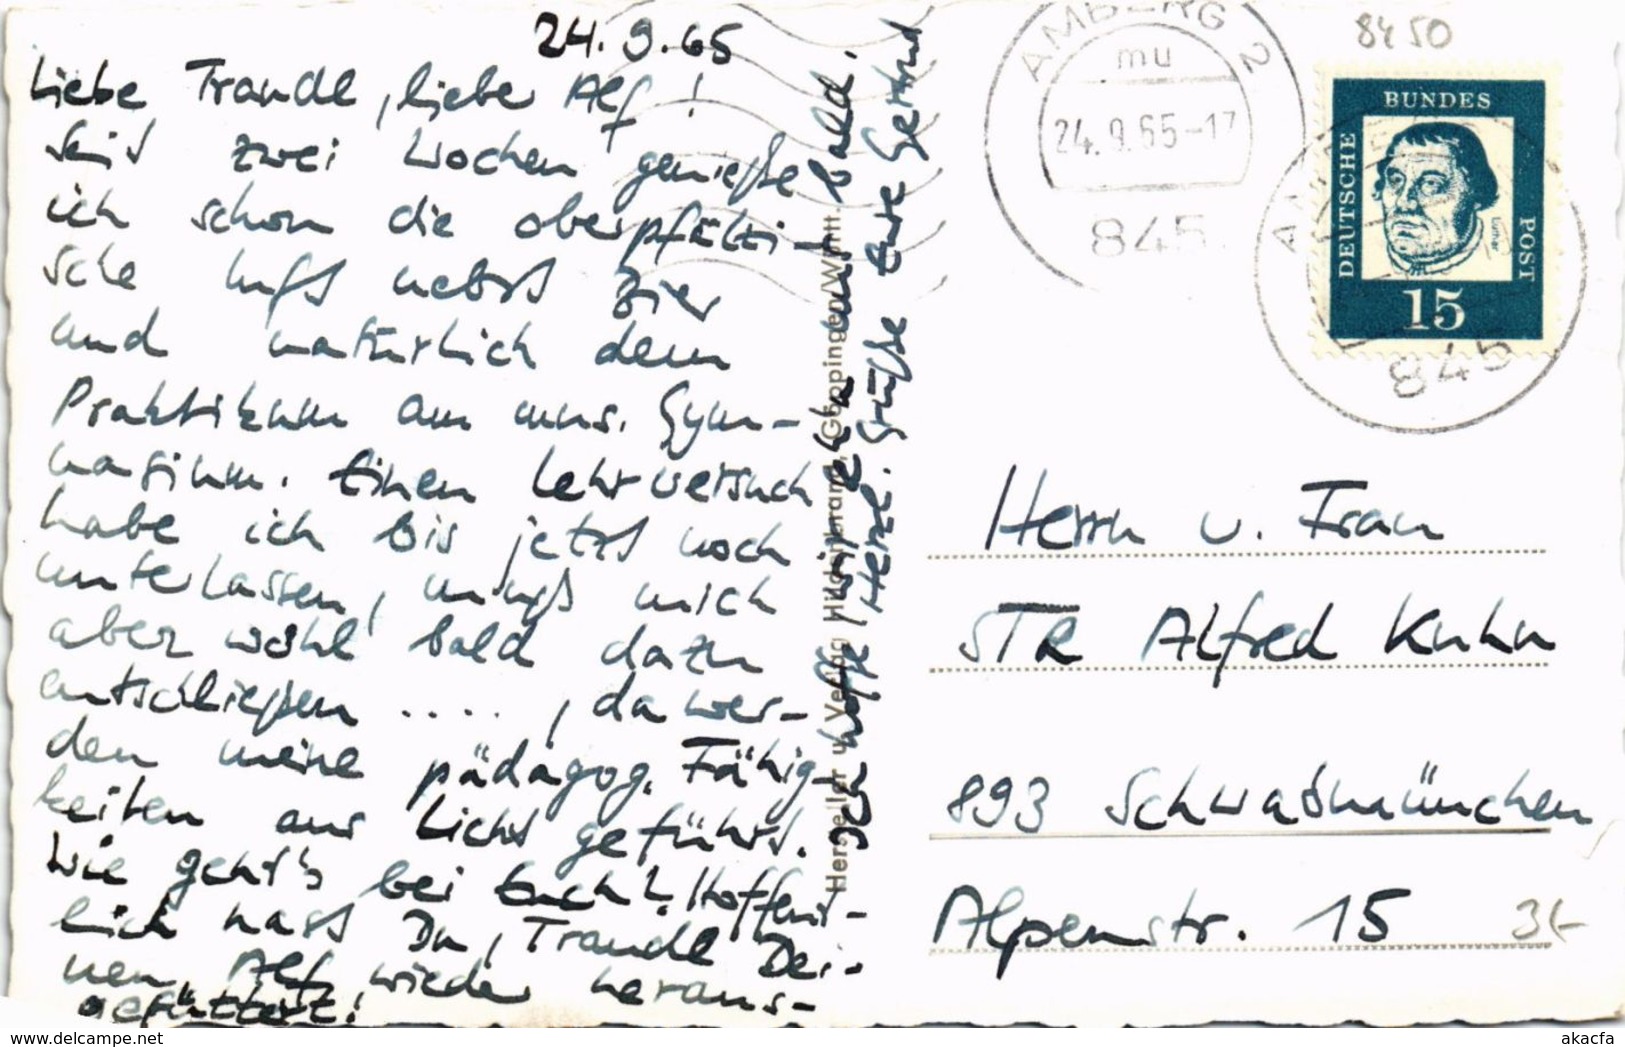 24.9.65
Liebe Traudl, liebe Alf!
Seit zwei Wochen genieße
ich schon die oberpfälzi-
sche Luft nebst Bier
und natürlich dem
Praktikum am mus. Gym-
nasium. Einen Lehrversuch
habe ich bis jetzt noch
unterlassen, muß mich
aber wohl bald dazu
entschließen ...., da wer-
den meine pädagog. Fähig-
keiten ans Licht geführt.
Wie geht's bei Euch? Hoffent-
lich hast Du, Traudl Dei-
nen Alf, wieder heraus-
gefüttert!
Ich hoffe, wir sehn uns bald.
Herzl. Grüße Eure Gertrud
Hersteller u. Verlag Hildenbrand, Göppingen/Württ.
AMBERG 2
mu
24.9.65-17
845
8450
DEUTSCHE
BUNDES
POST
Luther
15
845
Herrn u. Frau
STR Alfred Kuhn
893 Schwabmünchen
Alpenstr. 15
3.-
www.delcampe.net
akacfa